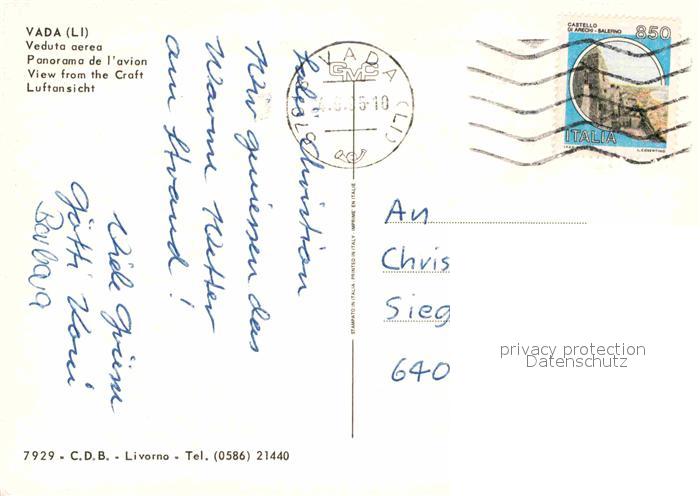 VADA (LI)
Veduta aerea
Panorama de l'avion
View from the Craft
Luftansicht
Lieber Christian
Wir geniessen das
Warme Wetter
am Strand!
Viele Grüsse
Götti Koni
Barbara
VADA (LI)
.8.86-10
57018
CASTELLO
DI ARECHI - SALERNO
850
ITALIA
STAMPATO IN ITALIA - PRINTED IN ITALY - IMPRIME EN ITALIE
An
Chris
Sieg
640
privacy protection
Datenschutz
7929 - C.D.B. - Livorno - Tel. (0586) 21440